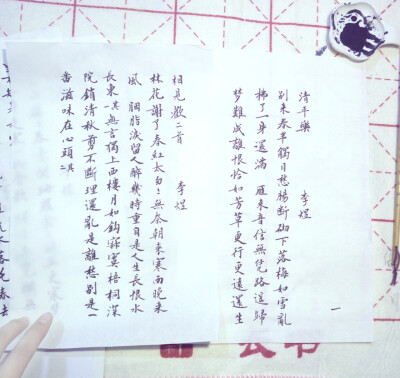 清平樂 李煜
別來春半觸目愁腸斷砌下落梅如雪亂
拂了一身還滿 雁來音信無憑路遙歸
夢難成離恨恰如芳草更行更遠還生
一
相見歡二首 李煜
林花謝了春紅太匆匆無奈朝來寒雨晚來
風 胭脂淚留人醉幾時重自是人生長恨水
長東 其一 無言獨上西樓月如鈎寂寞梧桐深
院鎖清秋剪不斷理還亂是離愁別是一
番滋味在心頭 其二
花春去